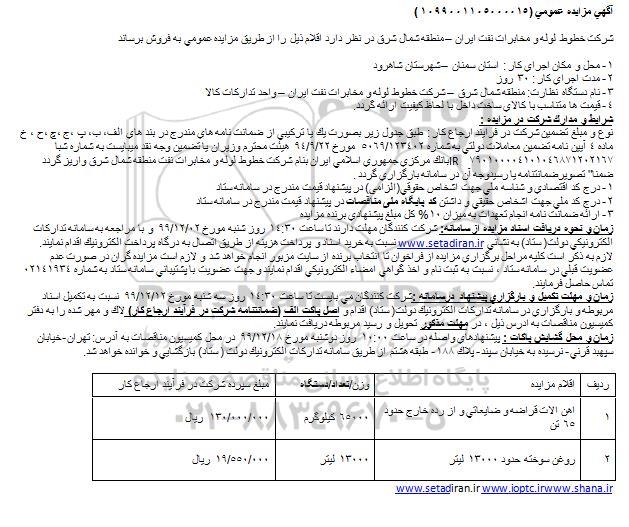 آگهي مزايده عمومي (۱۰۹۹۰۰۱۱۰۵۰۰۰۰۱۵)
شركت خطوط لوله و مخابرات نفت ايران – منطقه شمال شرق در نظر دارد اقلام ذيل را از طريق مزايده عمومي به فروش برساند
۱- محل و مكان اجراي كار : استان سمنان – شهرستان شاهرود
۲- مدت اجراي كار : ۳۰ روز
۳- نام دستگاه نظارت: منطقه شمال شرق – شركت خطوط لوله و مخابرات نفت ايران – واحد تداركات كالا
۴- قيمت ها متناسب با كالاي ساخت داخل با لحاظ كيفيت ارائه گردد.
شرايط و مدارك شركت در مزايده :
نوع و مبلغ تضمين شركت در فرآيند ارجاع كار : طبق جدول زير بصورت يك يا تركيبي از ضمانت نامه هاي مندرج در بند هاي الف، ب، پ ،ج ،چ ،ح ، خ
ماده ۴ آيين نامه تضمين معاملات دولتي به شماره ۵۰۶۹/۱۲۳۴۰۲ مورخ ۹۴/۹/۲۲ هيئت محترم وزيران يا تضمين وجه نقد ميبايست به شماره شبا
IR۷۹۰۱۰۰۰۰۴۱۰۱۰۴۶۸۷۱۲۰۲۱۶۷ بانك مركزي جمهوري اسلامي ايران بنام شركت خطوط لوله و مخابرات نفت منطقه شمال شرق واريز گردد
ضمنا" تصوير ضمانتنامه يا رسيدوجه آن در سامانه بارگزاري گردد .
۱- درج كد اقتصادي و شناسه ملي جهت اشخاص حقوقي(الزامي) در پيشنهاد قيمت مندرج در سامانه ستاد
۲- درج كد ملي جهت اشخاص حقيقي و داشتن كد پايگاه ملي مناقصات در پيشنهاد قيمت مندرج در سامانه ستاد
۳- ارائه ضمانت نامه انجام تعهدات به ميزان ۱۰% كل مبلغ پيشنهادي برنده مزايده
زمان و نحوه دريافت اسناد مزايده از سامانه: شركت كنندگان مهلت دارند تا ساعت ۱۴:۳۰ روز شنبه مورخ ۹۹/۱۲/۰۲ و با مراجعه به سامانه تداركات
الكترونيكي دولت( ستاد) به نشاني www.setadiran.ir نسبت به خريد اسناد و پرداخت هزينه از طريق اتصال به درگاه پرداخت الكترونيك اقدام نمايند.
لازم به ذكر است كليه مراحل برگزاري مزايده از فراخوان تا انتخاب برنده از سايت مزبور انجام خواهد شد و لازم است مزايده گران در صورت عدم
عضويت قبلي در سامانه ستاد ، نسبت به ثبت نام و اخذ گواهي امضاء الكترونيكي اقدام نمايند و جهت عضويت با پشتيباني سامانه ستاد به شماره ۰۲۱۴۱۹۳۴
تماس حاصل فرمايند.
زمان و مهلت تكميل و بارگزاري پيشنهاد درسامانه :شركت كنندگان مي بايست تا ساعت ۱۴:۳۰ روز سه شنبه مورخ ۹۹/۱۲/۱۲ نسبت به تكميل اسناد
مربوطه و بارگزاري در سامانه تداركات الكترونيك دولت( ستاد) اقدام و اصل پاكت الف (ضمانتنامه شركت در فرآيند ارجاع كار) لاك و مهر شده را به دفتر
كميسيون مناقصات به آدرس ذيل ، در مهلت مذكور تحويل و رسيد مربوطه دريافت نمايند.
زمان و محل گشايش پاكات : پيشنهادهاي واصله در ساعت ۱۰:۰۰ روز دوشنبه مورخ ۹۹/۱۲/۱۸ در محل كميسيون مناقصات به آدرس: تهران-خيابان
سپهبد قرني- نرسيده به خيابان سپند- پلاك ۱۸۸- طبقه هشتم از طريق سامانه تداركات الكترونيك دولت ( ستاد) بازگشايي و خوانده خواهد شد.
رديف اقلام مزايده وزن/تعداد/دستگاه مبلغ سپرده شركت در فرآيند ارجاع كار
۱ آهن آلات قراضه و ضايعاتي و از رده خارج حدود ۶۵ تن ۶۵۰۰۰ كيلوگرم ۱۳۰/۰۰۰/۰۰۰ ريال
۲ روغن سوخته حدود ۱۳۰۰۰ ليتر ۱۳۰۰۰ ليتر ۱۹/۵۵۰/۰۰۰ ريال
www.setadiran.ir www.ioptc.irwww.shana.ir
پایگاه اطلاع رسانی مناقصه و مزایده
۰۲۱-۸۸۳۴۹۶۷۰-۵